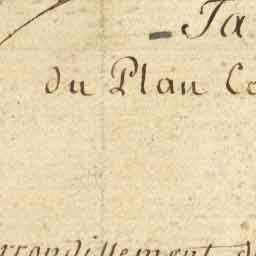 Ta
du Plan Co
rrondissement d